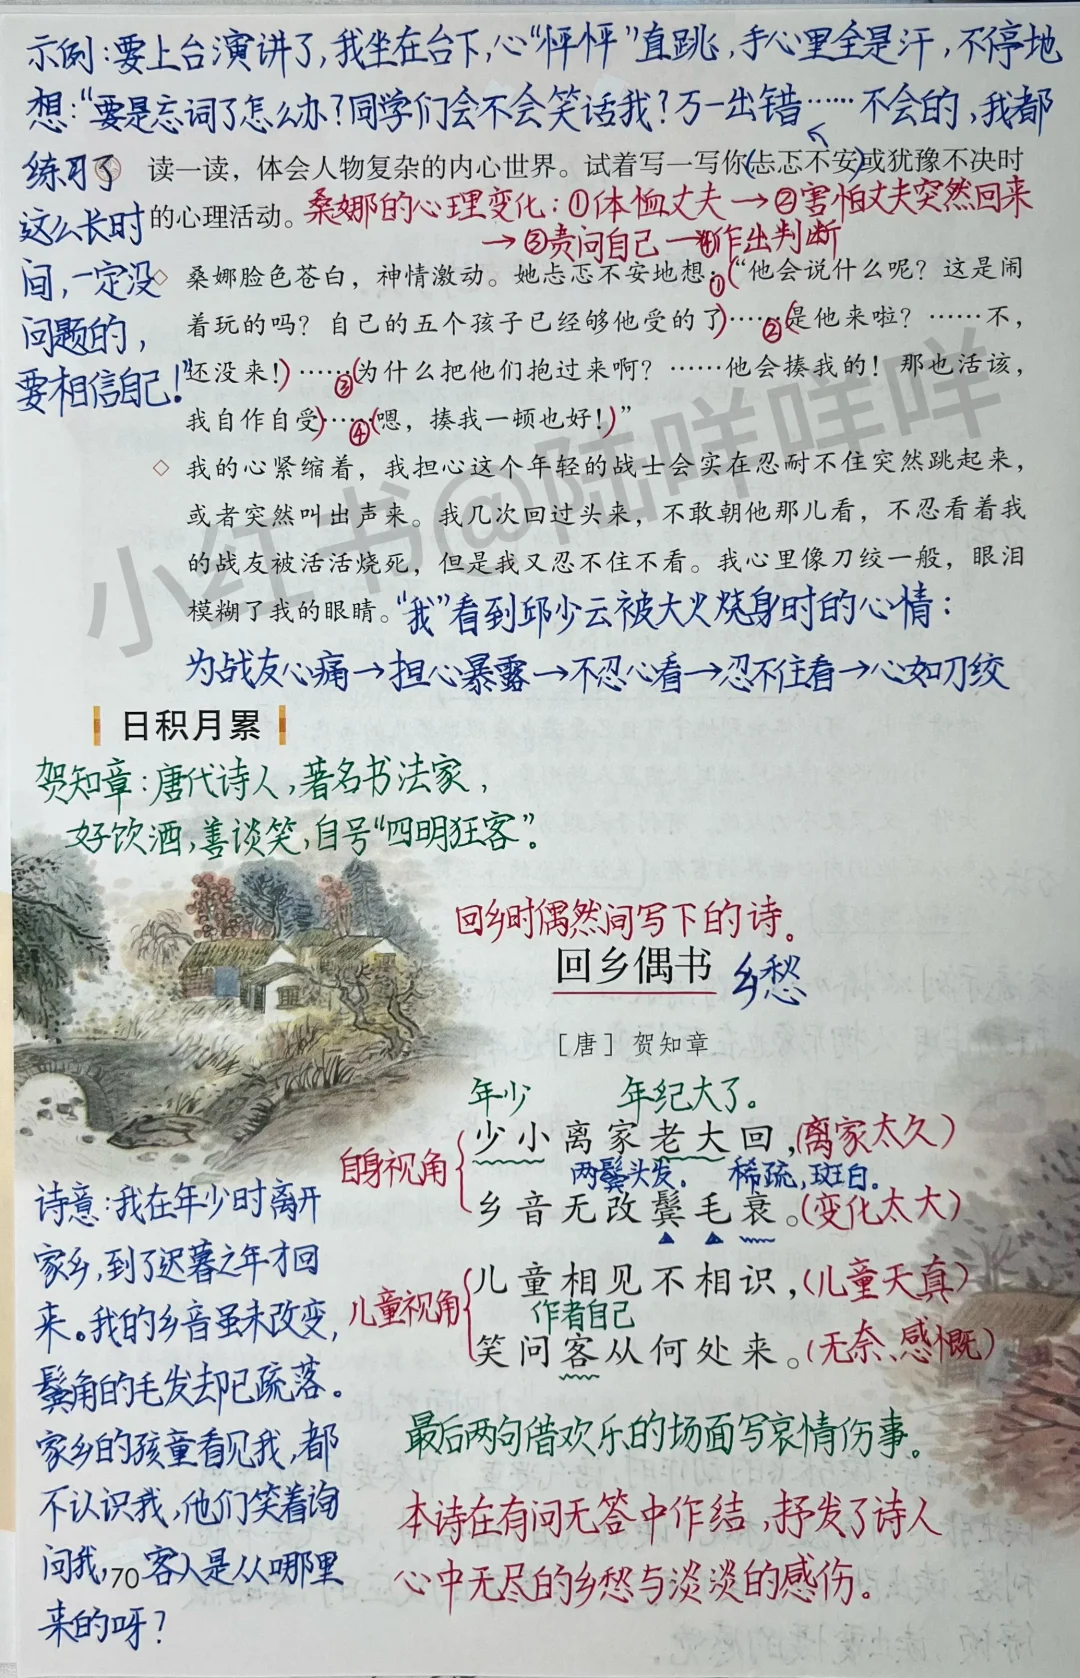 示例：要上台演讲了，我坐在台下，心“怦怦”直跳，手心里全是汗，不停地
想：“要是忘词了怎么办？同学们会不会笑话我？万一出错……不会的，我都
练习了
这么长时
间，一定没
问题的，
要相信自己！”
读一读，体会人物复杂的内心世界。试着写一写你(忐忑不安)或犹豫不决时
的心理活动。
桑娜的心理变化：①体恤丈夫→②害怕丈夫突然回来
→③责问自己→④作出判断
桑娜脸色苍白，神情激动。她忐忑不安地想：①(“他会说什么呢？这是闹
着玩的吗？自己的五个孩子已经够他受的了)……②(是他来啦？……不，
还没来！)……③(为什么把他们抱过来啊？……他会揍我的！那也活该，
我自作自受)……④(嗯，揍我一顿也好！)”
我的心紧缩着，我担心这个年轻的战士会实在忍耐不住突然跳起来，
或者突然叫出声来。我几次回过头来，不敢朝他那儿看，不忍看着我
的战友被活活烧死，但是我又忍不住不看。我心里像刀绞一般，眼泪
模糊了我的眼睛。
“我”看到邱少云被大火烧身时的心情：
为战友心痛→担心暴露→不忍心看→忍不住看→心如刀绞
小红书@陆咩咩咩
日积月累
贺知章：唐代诗人，著名书法家，
好饮酒，善谈笑，自号“四明狂客”。
回乡时偶然间写下的诗。
回乡偶书 乡愁
［唐］贺知章
年少 年纪大了。
自身视角
少小离家老大回，(离家太久)
两鬓头发。 稀疏，斑白。
乡音无改鬓毛衰。(变化太大)
儿童视角
儿童相见不相识，(儿童天真)
作者自己
笑问客从何处来。(无奈、感慨)
最后两句借欢乐的场面写哀情伤事。
本诗在有问无答中作结，抒发了诗人
心中无尽的乡愁与淡淡的感伤。
诗意：我在年少时离开
家乡，到了迟暮之年才回
来。我的乡音虽未改变，
鬓角的毛发却已疏落。
家乡的孩童看见我，都
不认识我，他们笑着询
问我，客人是从哪里
来的呀？
70